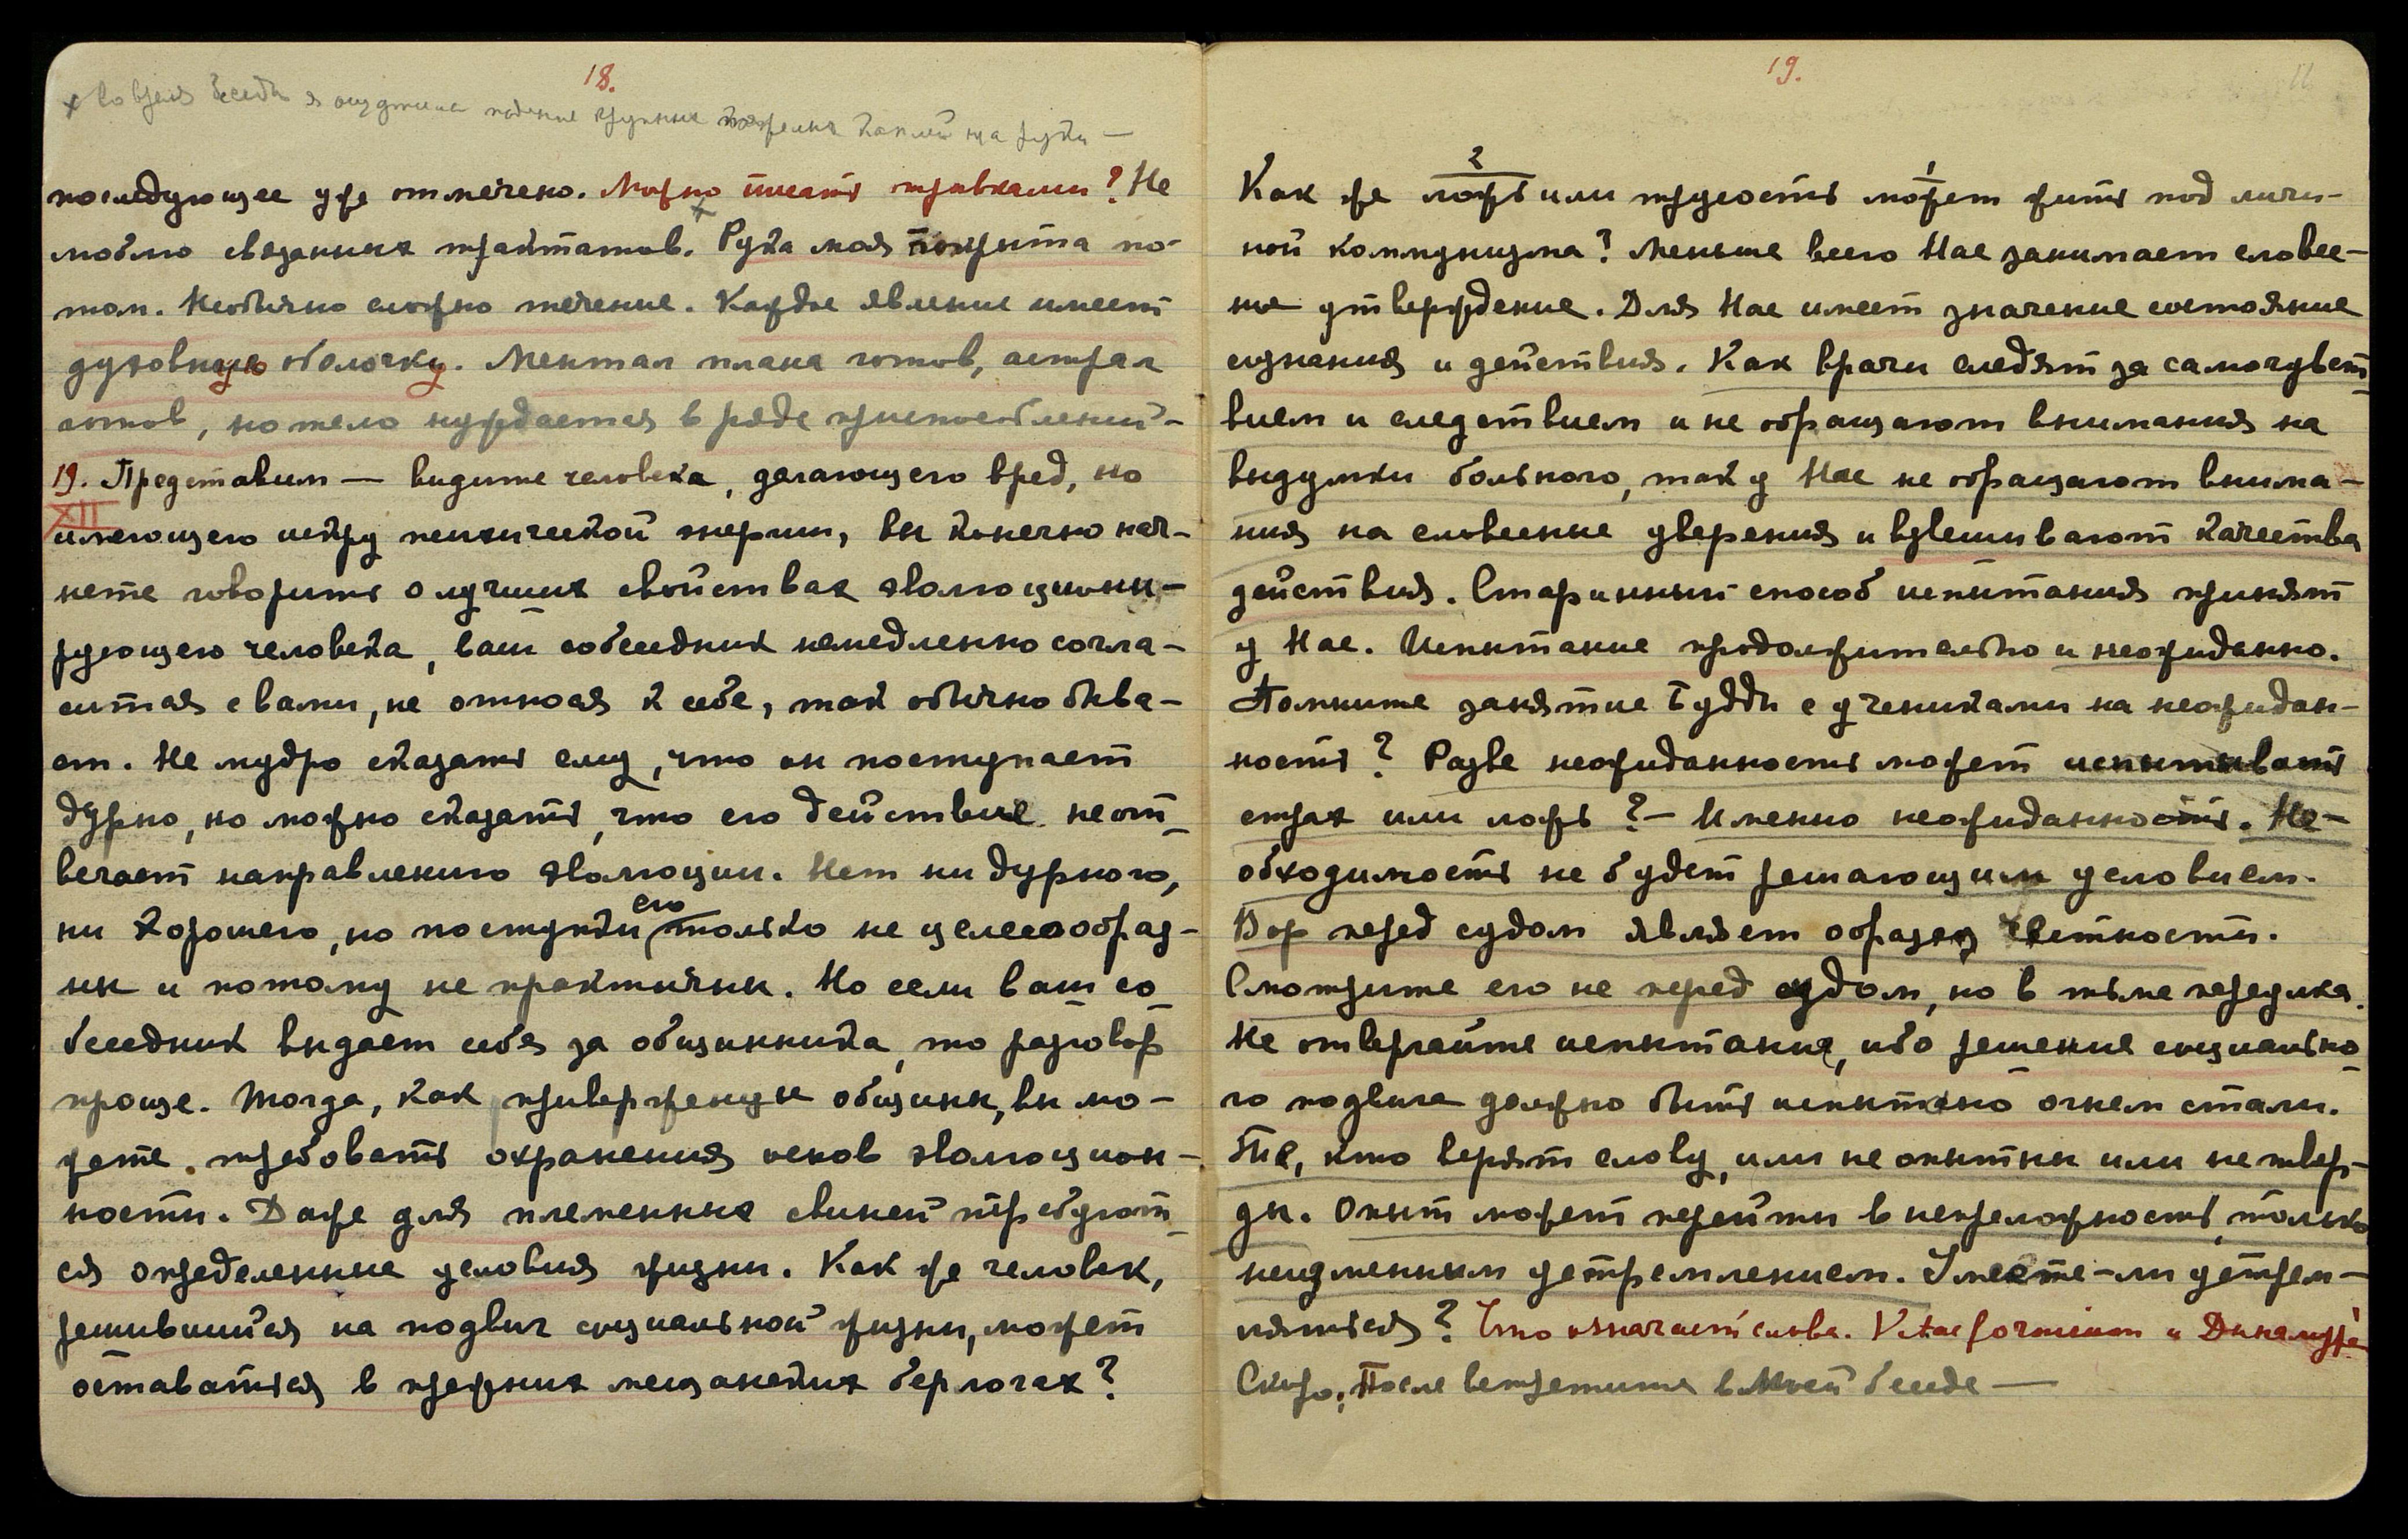 18.
× Во время беседы я ощутила падение крупных капель на руки —
последующее уже отмечено. Можно писать отрывками? Не
люблю связанных трактатов. × Рука моя покрыта по-
том. Необычно сложно течение. Каждое явление имеет
духовную оболочку. Ментал плана готов, астрал
готов, но тело нуждается в ряде приспособлений -
19. Представим — видите человека, делающего вред, но
XII
имеющего искру психической энергии, вы конечно нач-
нете говорить о лучших свойствах эволюциони-
рующего человека, ваш собеседник немедленно согла-
сится с вами, не относя к себе, так обычно быва-
ет. Не мудро сказать ему, что он поступает
дурно, но можно сказать, что его действие не от-
вечает направлению эволюции. Нет ни дурного,
ни хорошего, но поступки его только не целесообраз-
ны и потому не практичны. Но если ваш со-
беседник выдает себя за общинника, то разговор
проще. Тогда, как приверженцы общины, вы мо-
жете требовать охранения основ эволюцион-
ности. Даже для племенных свиней требуют-
ся определенные условия жизни. Как же человек,
решившийся на подвиг социальной жизни, может
оставаться в прежних мещанских берлогах?
19.
Как же 2 ложь или трусость 1 может жить под личи-
ной коммунизма? Меньше всего Нас занимает словес-
ное утверждение. Для Нас имеет значение состояние
сознания и действия. Как врачи следят за самочувст-
вием и следствием и не обращают внимания на
выдумки больного, так у Нас не обращают внима-
ния на словесные уверения и взвешивают качества
действия. Старинный способ испытания принят
у Нас. Испытание продолжительно и неожиданно.
Помните занятие Будды с учениками на неожидан-
ность? Разве неожиданность может испытывать
страх или ложь? — Именно неожиданность. Не-
обходимость не будет решающим условием.
Вор перед судом являет образец честности.
Смотрите его не перед судом, но в тьме переулка.
Не отвергайте испытания, ибо решение социально-
го подвига должно быть испытано огнем стали.
Те, кто верят слову, или не опытны или не твер-
ды. Опыт может перейти в непреложность, только
неизменным устремлением. Умеете-ли устрем-
ляться? Что означает слова. Vitae formium и
Скоро. После встретите в Моей беседе —